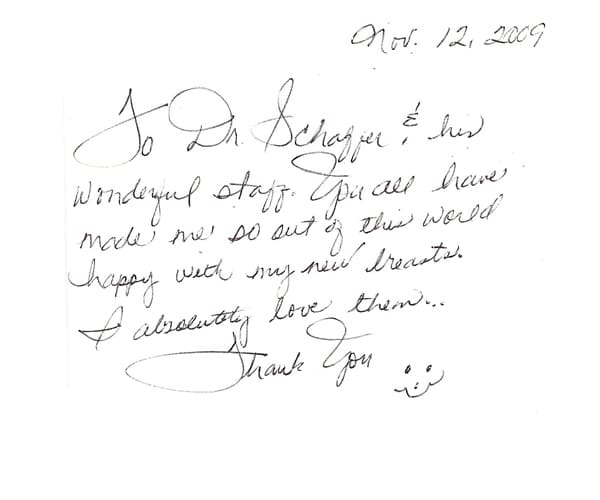 Nov. 12, 2009
To Dr. Schaffer & his
wonderful staff. You all have
made me so out of this world
happy with my new breasts.
I absolutely love them...
Thank You